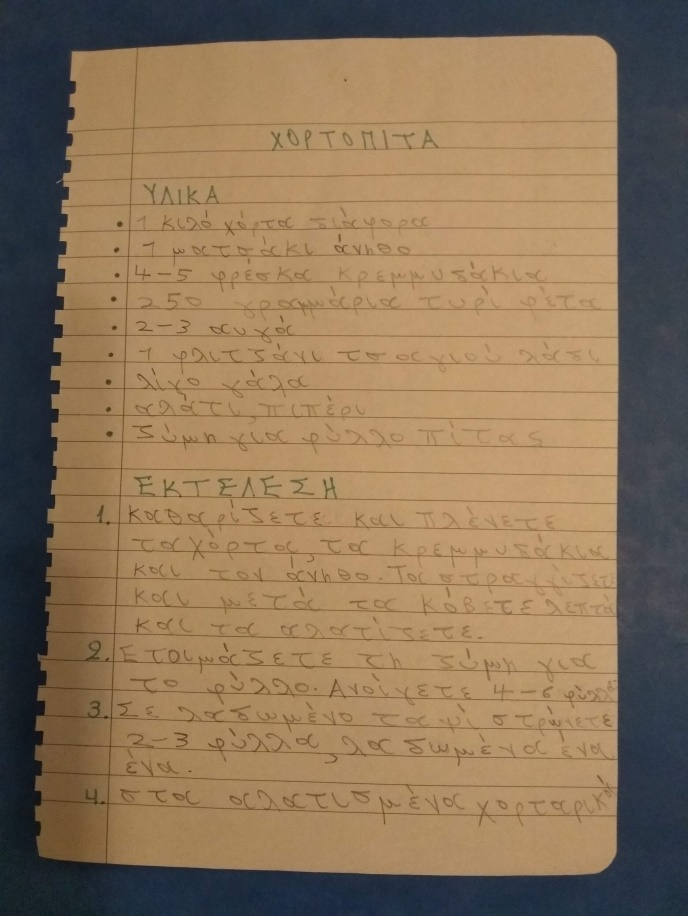 ΧΟΡΤΟΠΙΤΑ
ΥΛΙΚΑ
• 1 κιλό χόρτα διάφορα
• 1 ματσάκι άνηθο
• 4-5 φρέσκα κρεμμυδάκια
• 250 γραμμάρια τυρί φέτα
• 2-3 αυγά
• 1 φλιτζάνι τσαγιού λάδι
• λίγο γάλα
• αλάτι, πιπέρι
• ζύμη για φύλλο πίτας
ΕΚΤΕΛΕΣΗ
1. καθαρίζετε και πλένετε
τα χόρτα, τα κρεμμυδάκια
και τον άνηθο. Τα στραγγίζετε
και μετά τα κόβετε λεπτά
και τα αλατίζετε.
2. Ετοιμάζετε τη ζύμη για
το φύλλο. Ανοίγετε 4-6 φύλλα
3. Σε λαδωμένο ταψί στρώνετε
2-3 φύλλα, λαδωμένα ένα
ένα.
4. στα αλατισμένα χορταρικά